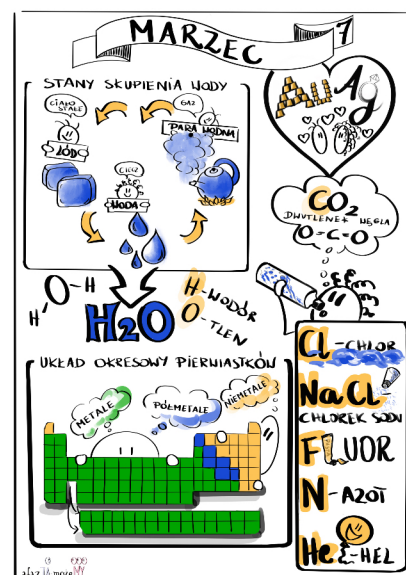 MARZEC
7
STANY SKUPIENIA WODY
CIAŁO
STAŁE
GAZ
LÓD
PARA WODNA
CIECZ
WODA
Au Ag
CO2
DWUTLENEK WĘGLA
O=C=O
H-O-H
H2O
H-WODÓR
O-TLEN
UKŁAD OKRESOWY PIERWIASTKÓW
METALE
PÓŁMETALE
NIEMETALE
Cl-CHLOR
NaCl-
CHLOREK SODU
FLUOR
N-AZOT
He-HEL